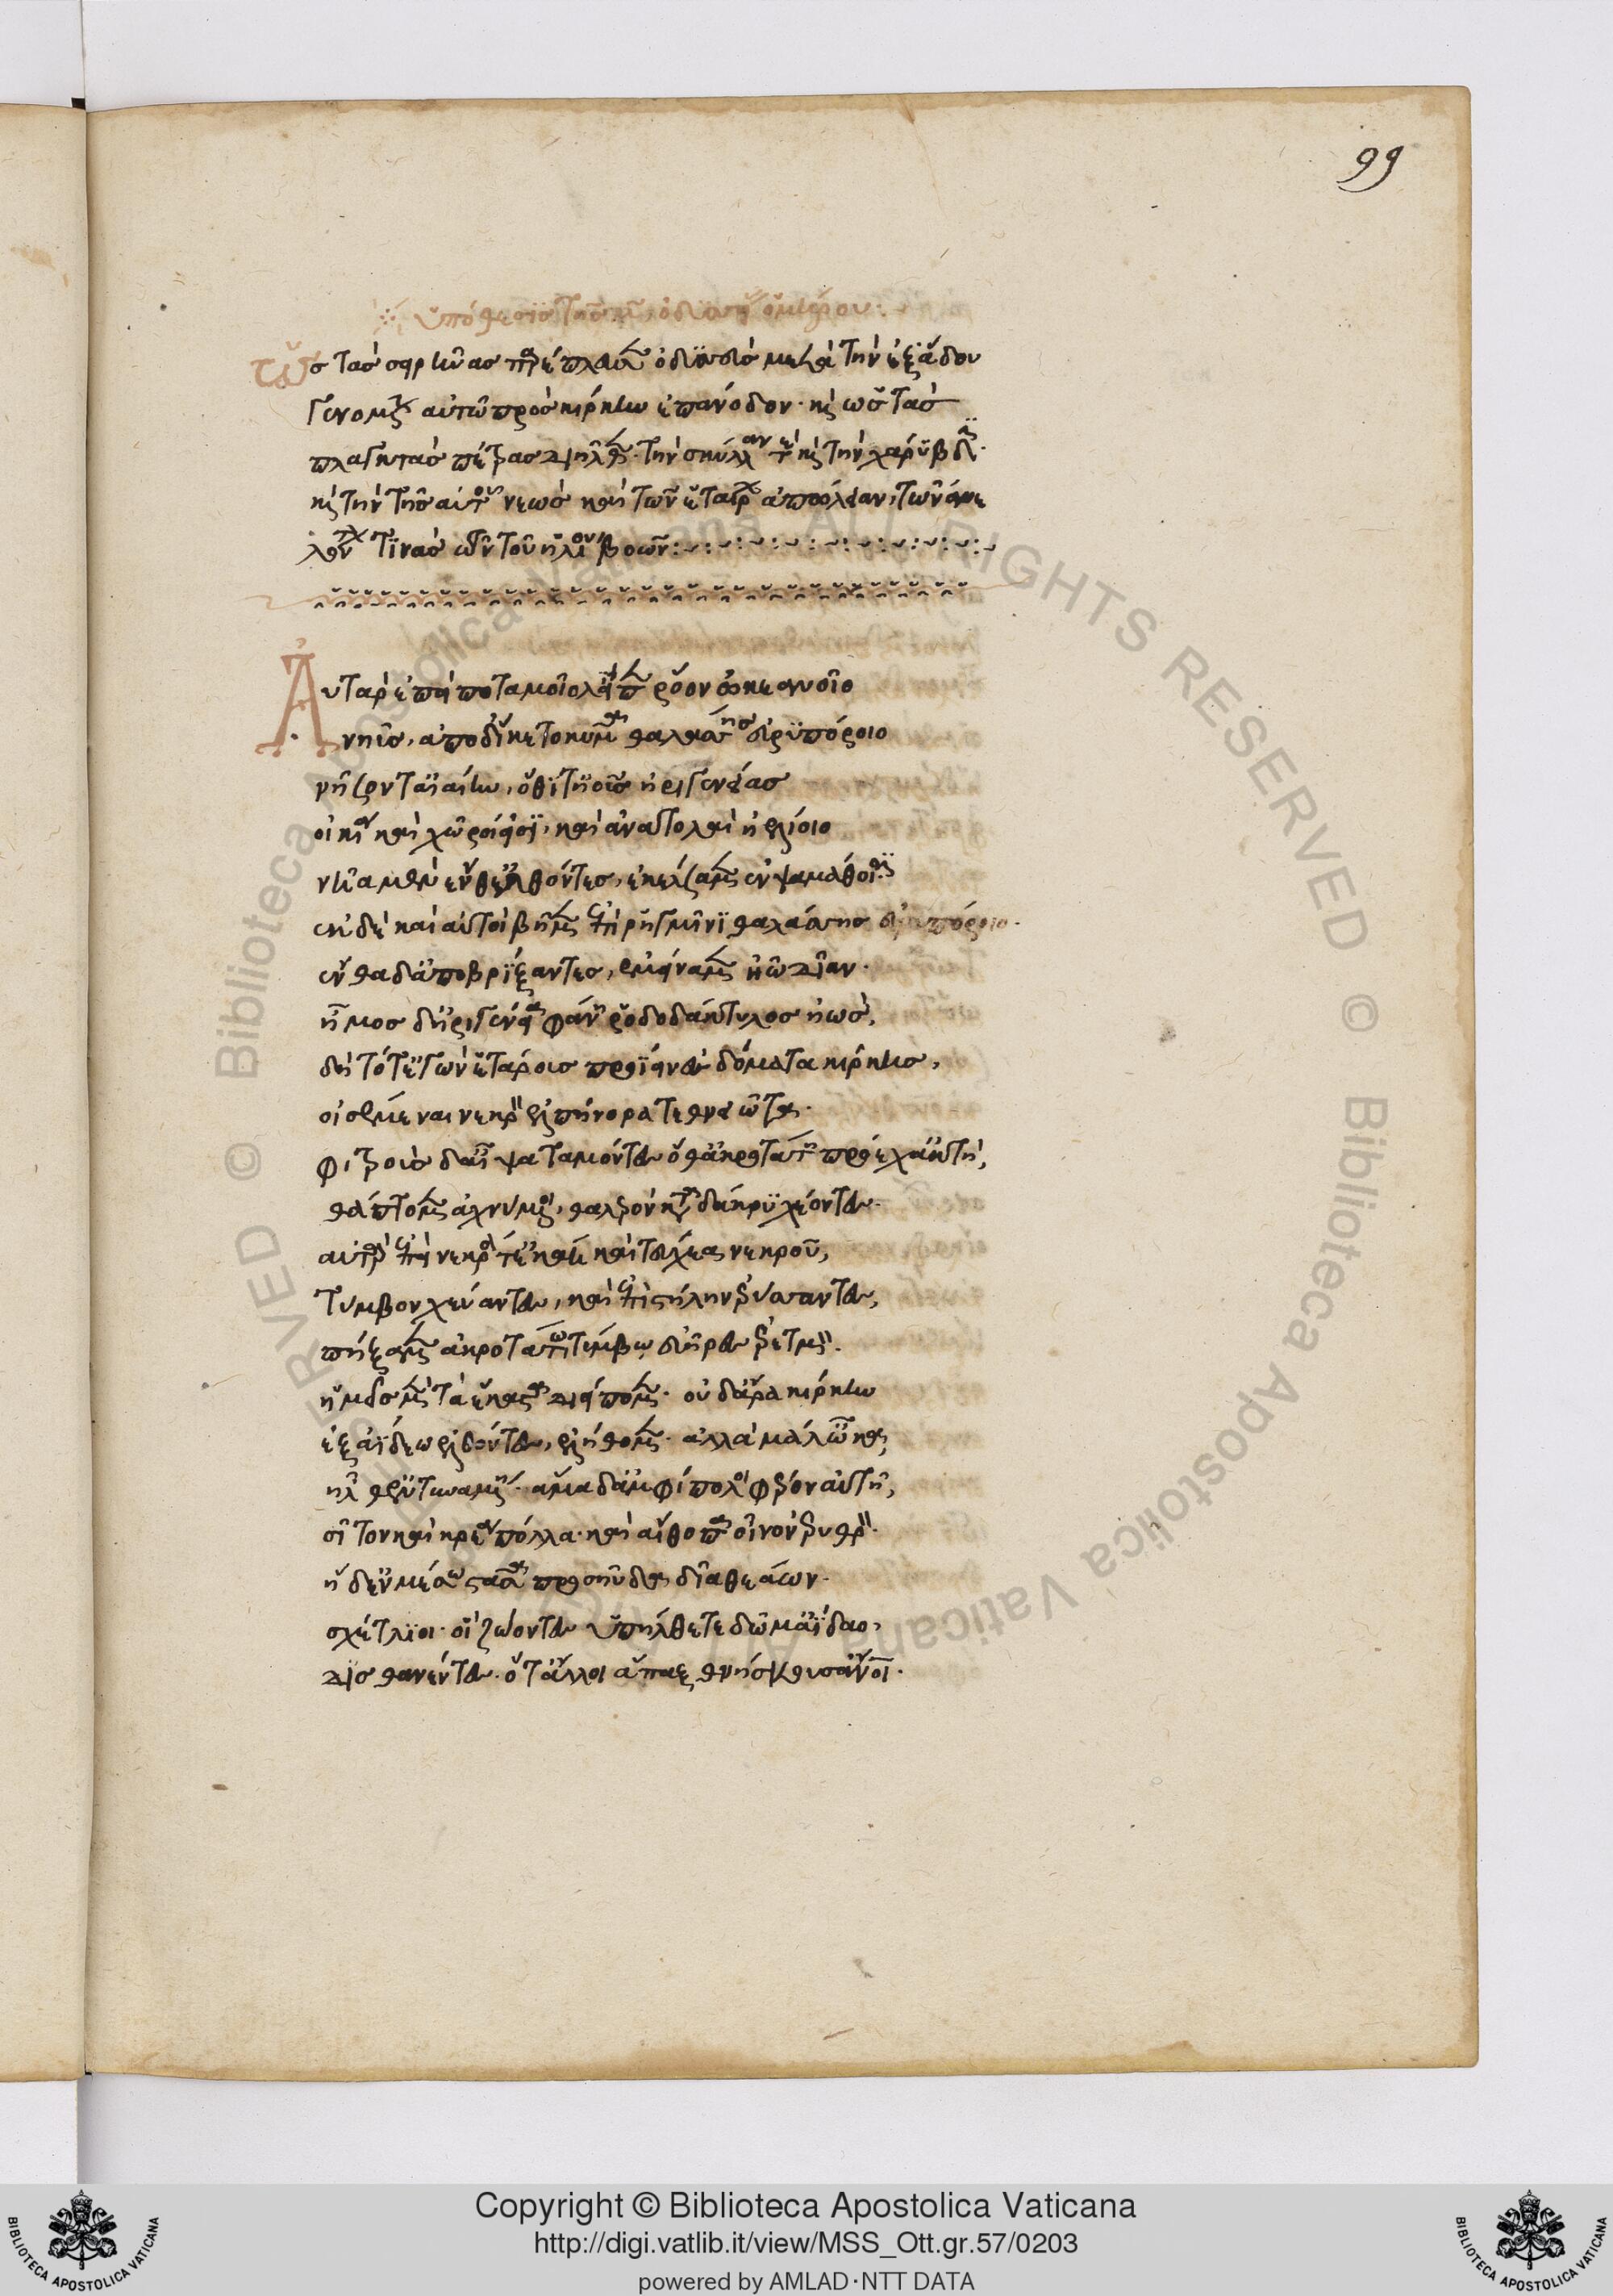 99
ὑπόθεσις τῆς μ ὀδυσσείας ὁμήρου
τῶς τὰς σειρῆνας παρέπλευσεν ὀδυσσεὺς μετὰ τὴν ἐξ ᾅδου
γενομένην αὐτῷ πρὸς κίρκην ἐπάνοδον· καὶ ὡς τὰς
πλαγκτὰς πέτρας διῆλθε· τὴν σκύλλαν τε καὶ τὴν χάρυβδιν·
καὶ τὴν τῆς αὐτοῦ νεὼς καὶ τῶν ἑταίρων ἀπώλειαν, τῶν
τινὰς τῶν τοῦ ἡλίου βοῶν:
Αὐτὰρ ἐπεὶ ποταμοῖο λίπεν ῥόον ὠκεανοῖο
νηῦς, ἀπὸ δ' ἵκετο κῦμα θαλάσσης εὐρυπόροιο
νῆσόν τ' αἰαίην, ὅθι τ' ἠοῦς ἠριγενείας
οἰκία καὶ χῶροί εἰσι, καὶ ἀνατολαὶ ἠελίοιο
νῆα μὲν ἔνθ' ἐλθόντες, ἐκέλσαμεν ἐν ψαμάθοισιν
ἐκ δὲ καὶ αὐτοὶ βῆμεν ἐπὶ ῥηγμῖνι θαλάσσης εὐρυπόροιο·
ἔνθα δ' ἀποβρίξαντες, ἐμείναμεν ἠῶ δῖαν·
ἦμος δ' ἠριγένεια φάνη ῥοδοδάκτυλος ἠώς,
δὴ τότ' ἐγὼν ἑτάρους προΐειν ἐς δώματα κίρκης,
οἰσέμεναι νεκρὸν ἐλπήνορα τεθνειῶτα·
φιτροὺς δ' αἶψα ταμόντες ὅθ' ἀκροτάτη πρόεχ' ἀκτή,
θάπτομεν ἀχνύμενοι, θαλερὸν κατὰ δάκρυ χέοντες·
αὐτὰρ ἐπεὶ νεκρός τ' ἐκάη καὶ τεύχεα νεκροῦ,
τύμβον χεύαντες, καὶ ἐπὶ στήλην ἐρύσαντες,
πήξαμεν ἀκροτάτῳ τύμβῳ εὐῆρες ἐρετμόν·
ἡμεῖς μὲν τὰ ἕκαστα διείπομεν· οὐδ' ἄρα κίρκην
ἐξ ἀΐδεω ἐλθόντες, ἐλήθομεν· ἀλλὰ μάλ' ὦκα
ἦλθ' ἐντυναμένη· ἅμα δ' ἀμφίπολοι φέρον αὐτῇ,
σῖτον καὶ κρέα πολλὰ· καὶ αἴθοπα οἶνον ἐρυθρόν·
ἡ δ' ἐν μέσῳ στᾶσα προσηύδα δῖα θεάων·
σχέτλιοι· οἳ ζώοντες ὑπήλθετε δῶμ' ἀΐδαο,
δὶς θανέοντες· ὅτ' ἄλλοι ἅπαξ θνήσκουσ' ἄνθρωποι·
Copyright © Biblioteca Apostolica Vaticana
http://digi.vatlib.it/view/MSS_Ott.gr.57/0203
powered by AMLAD·NTT DATA